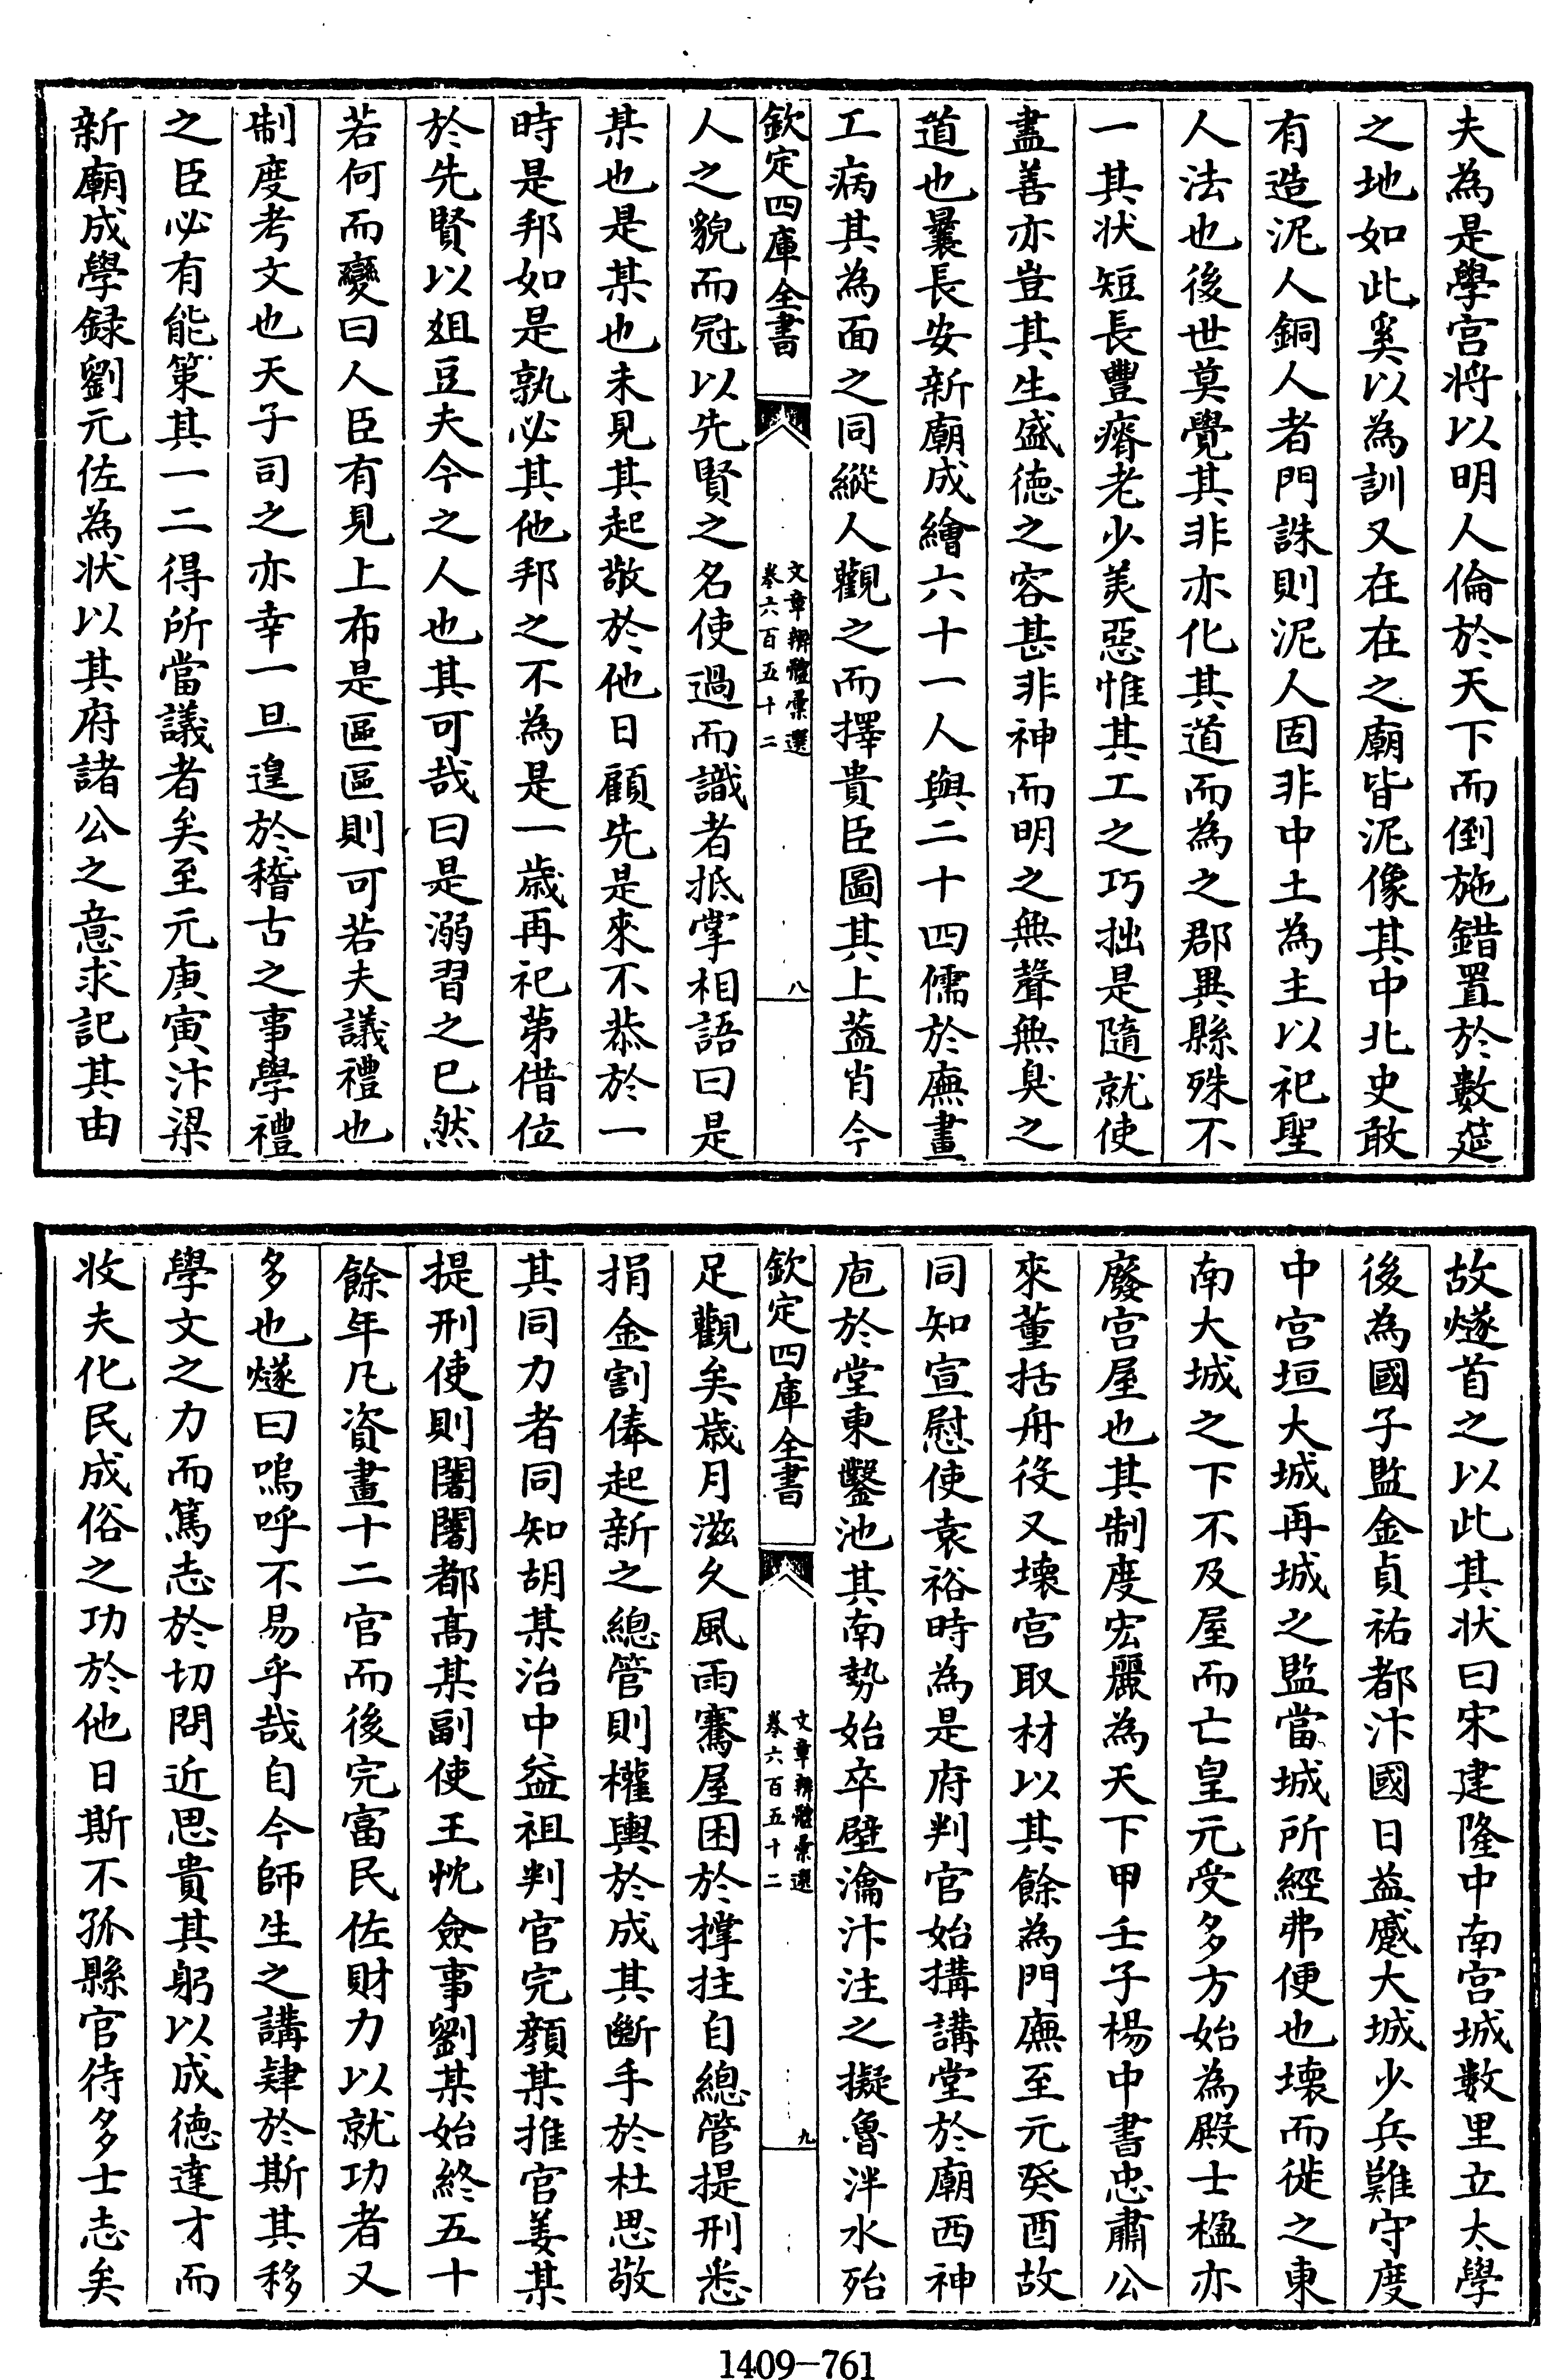 夫為是學宫将以明人倫於天下而倒施錯置於數筵
之地如此奚以為訓又在在之廟皆泥像其中北史敢
有造泥人銅人者門誅則泥人固非中土為主以祀聖
人法也後世莫覺其非亦化其道而為之郡異縣殊不
一其状短長豐瘠老少美惡惟其工之巧拙是隨就使
盡善亦豈其生盛徳之容甚非神而明之無聲無臭之
道也曩長安新廟成繪六十一人與二十四儒於廡畫
工病其為面之同縱人觀之而擇貴臣圖其上葢肖今
欽定四庫全書
文章辨體彚選
卷六百五十二
八
人之貌而冠以先賢之名使過而識者抵掌相語曰是
某也是某也未見其起敬於他日顧先是來不恭於一
時是邦如是孰必其他邦之不為是一歳再祀第借位
於先賢以俎豆夫今之人也其可哉曰是溺習之已然
若何而變曰人臣有見上布是區區則可若夫議禮也
制度考文也天子司之亦幸一旦遑於稽古之事學禮
之臣必有能策其一二得所當議者矣至元庚寅汴梁
新廟成學録劉元佐為状以其府諸公之意求記其由
故燧首之以此其状曰宋建隆中南宫城數里立太學
後為國子監金貞祐都汴國日益蹙大城少兵難守度
中宫垣大城再城之監當城所經弗便也壊而徙之東
南大城之下不及屋而亡皇元受多方始為殿士楹亦
廢宫屋也其制度宏麗為天下甲壬子楊中書忠肅公
來董括舟役又壊宫取材以其餘為門廡至元癸酉故
同知宣慰使袁裕時為是府判官始搆講堂於廟西神
庖於堂東鑿池其南勢始卒壁瀹汴注之擬魯泮水殆
欽定四庫全書
文章辨體彚選
卷六百五十二
九
足觀矣歳月滋久風雨騫屋困於撑拄自總管提刑悉
捐金割俸起新之總管則權輿於成其斷手於杜思敬
其同力者同知胡某治中益祖判官完顔某推官姜某
提刑使則闍闍都髙某副使王忱僉事劉某始終五十
餘年凡資畫十二官而後完富民佐財力以就功者又
多也燧曰嗚呼不易乎哉自今師生之講肄於斯其移
學文之力而篤志於切問近思貴其躬以成徳達才而
收夫化民成俗之功於他日斯不孤縣官待多士志矣
1409-761